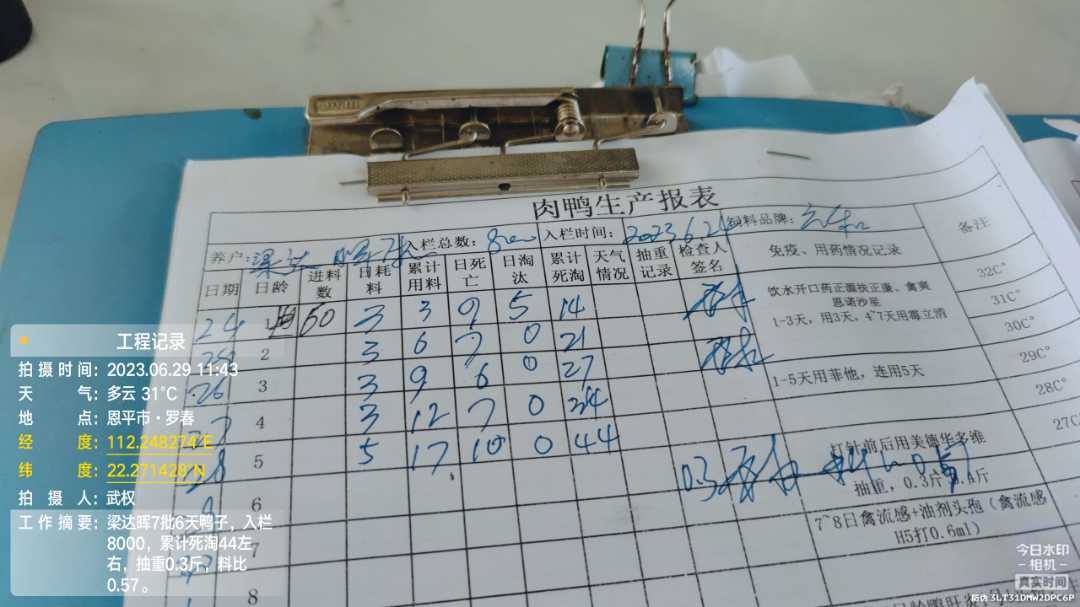 肉鸭生产报表
养户:梁达晖 入栏总数:8000 入栏时间:2023.6.24 饲料品牌: 备注
日期 日龄 进料数 日耗料 累计用料 日死亡 日淘汰 累计死淘 天气情况 抽重记录 检查人签名 免疫、用药情况记录
24 1 60 3 3 9 5 14
2 3 6 7 0 21
26 3 3 9 6 0 27
4 3 12 7 0 34
28 5 5 17 10 0 44
6
7
8
饮水开口药正菌扶正康、禽爽
恩诺沙星
1-3天,用3天,4~7天用毒立消
1-5天用菲他,连用5天
打针前后用美德华多维
抽重,0.3斤
7~8日禽流感+油剂头孢(禽流感
H5打0.6ml)
32C°
31C°
30C°
29C°
28C°
27C
工程记录
拍摄时间:2023.06.29 11:43
天气:多云 31℃
地点:恩平市·罗春
经度:112.248274°E
纬度:22.271428°N
拍摄人:武权
工作摘要:梁达晖7批6天鸭子,入栏
8000,累计死淘44左
右,抽重0.3斤,料比
0.57。
今日水印
-相机-
真实时间
防伪 3LT31DMW2DPC6P